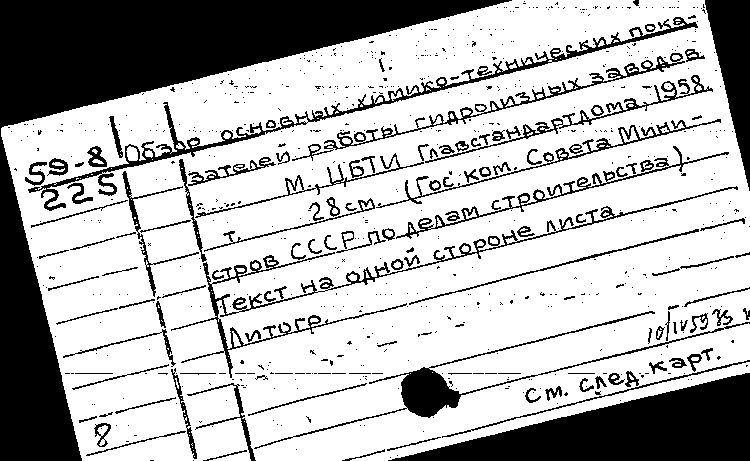 1.
59-8
225
Обзор основных химико-технических пока-
зателей работы гидролизных заводов
...... М., ЦБТИ Главстандартдома, 1958.
т. 28 см. (Гос. ком. Совета Мини-
стров СССР по делам строительства).
Текст на одной стороне листа.
Литогр.
10/IV59
См. след. карт.
8